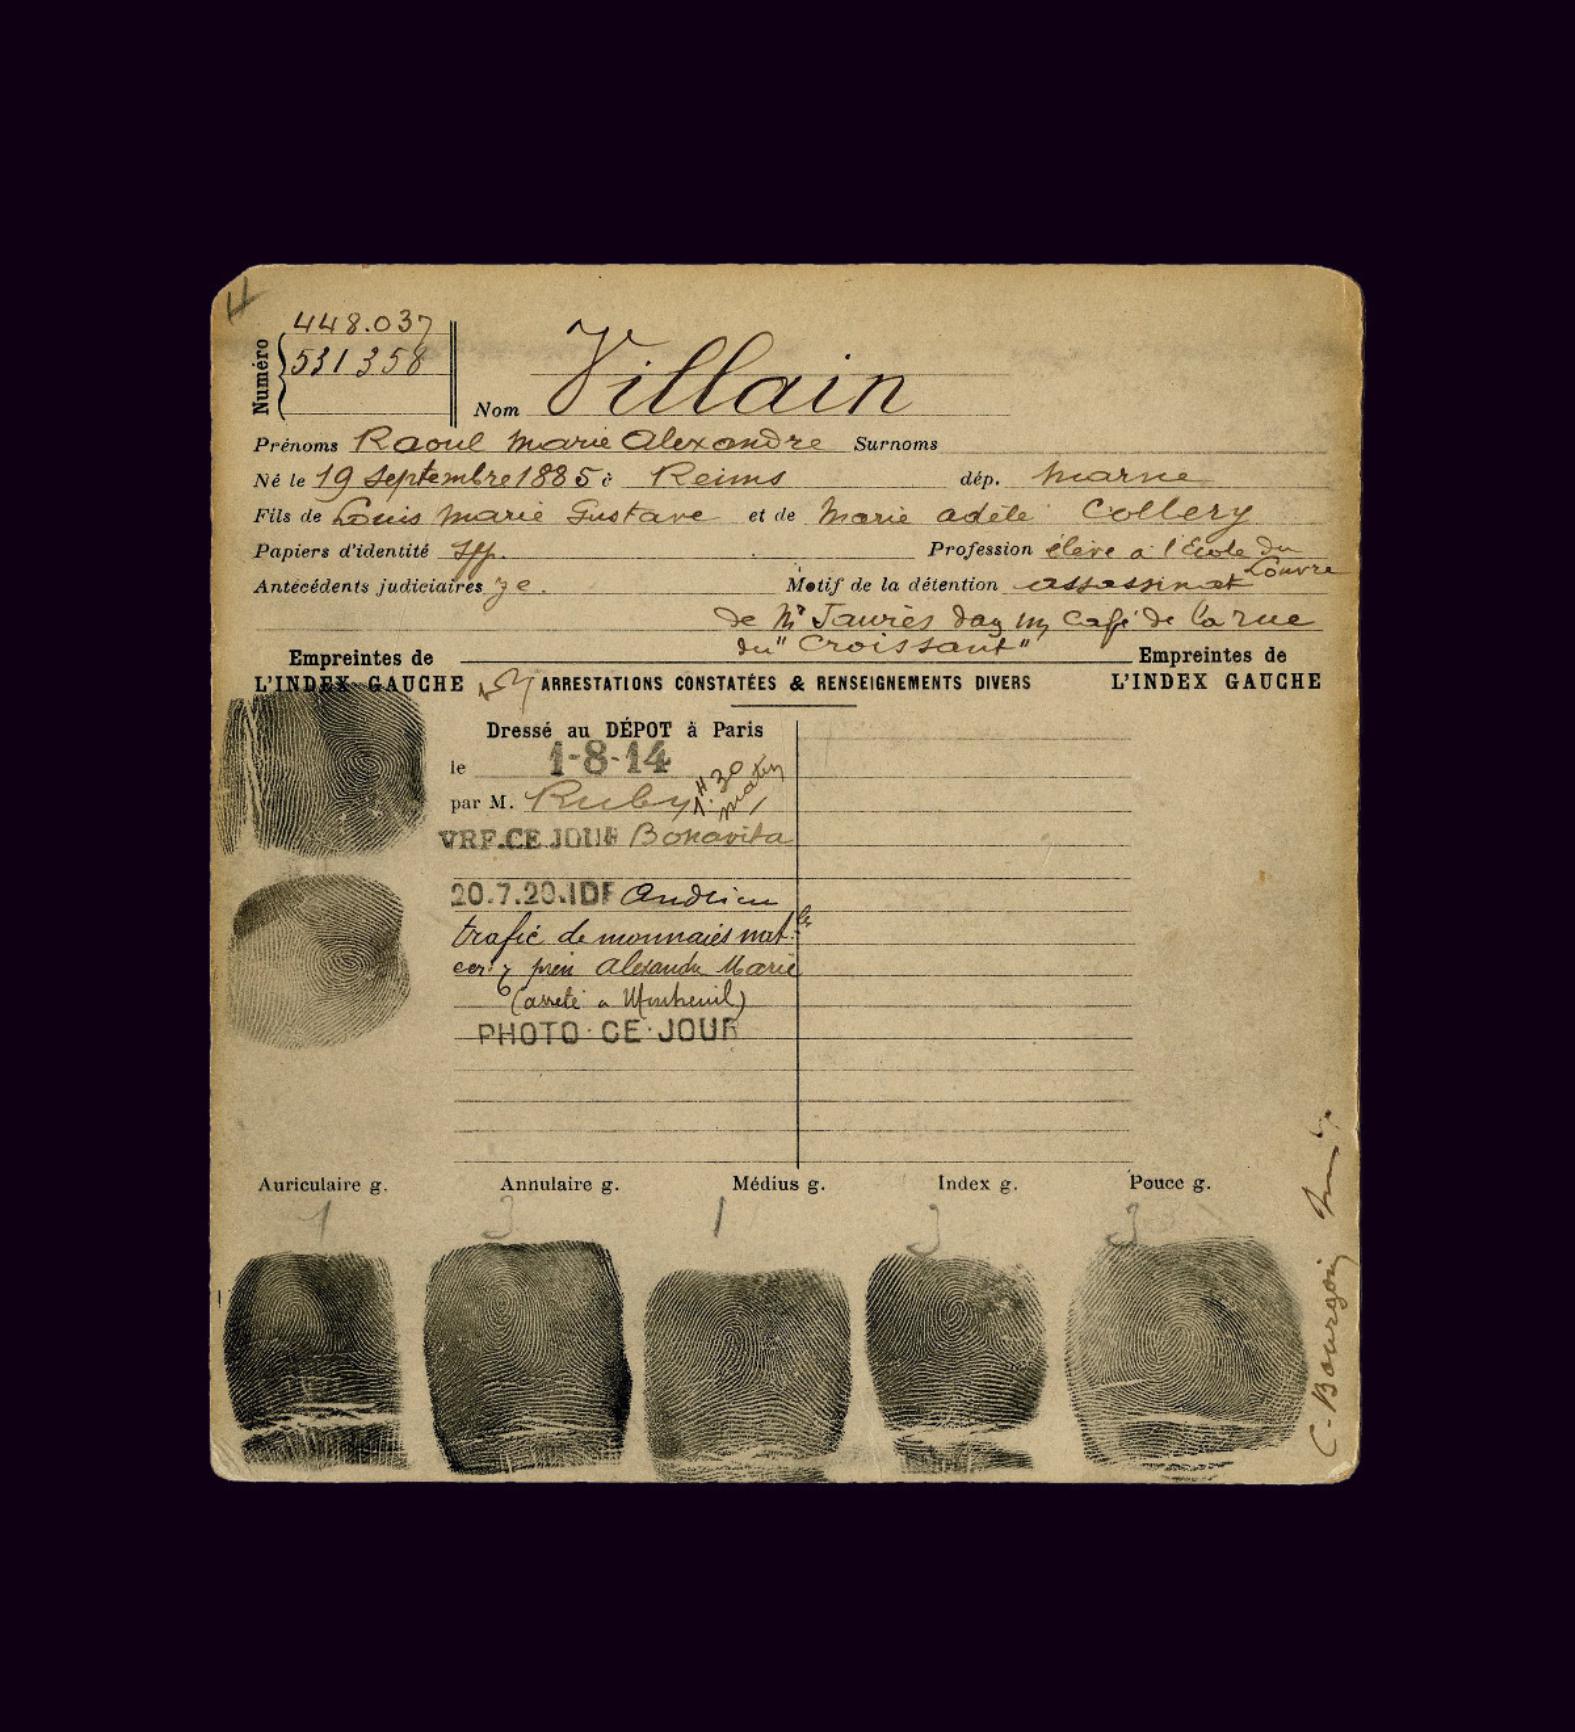 448.037
Numéro 531358
Nom Villain
Prénoms Raoul Marie Alexandre Surnoms
Né le 19 Septembre 1885 à Reims dép. Marne
Fils de Louis Marie Gustave et de Marie Adèle Collery
Papiers d'identité Profession élève à l'Ecole du
Louvre
Antécédents judiciaires Motif de la détention assassinat
de Mr Jaurès dans un Café de la rue
du "Croissant"
Empreintes de Empreintes de
L'INDEX GAUCHE ARRESTATIONS CONSTATÉES & RENSEIGNEMENTS DIVERS L'INDEX GAUCHE
Dressé au DÉPOT à Paris
le 1-8-14
par M. Ruby 1H30 matin
VRF.CE JOUR Bonavita
20.7.20.IDF Andrieu
trafic de monnaies natles
Alexandre Marie
(arrêté à Montreuil)
PHOTO·CE·JOUR
Auriculaire g. Annulaire g. Médius g. Index g. Pouce g.
1 3 1 3 3
C. Bourgoin